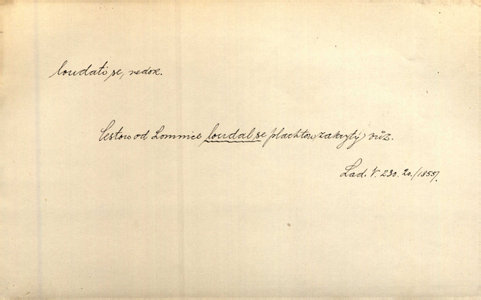 loudati se, nedok.
Cestou od Lomnice loudal se plachtou zakrytý vůz.
Lad. V. 230. 20./1855/.